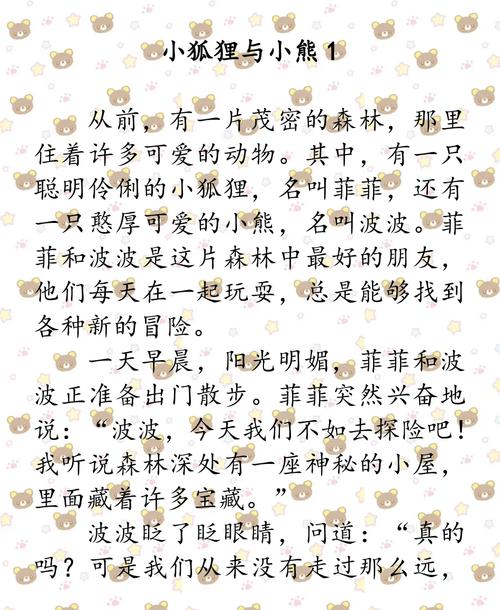 小狐狸与小熊1
从前，有一片茂密的森林，那里
住着许多可爱的动物。其中，有一只
聪明伶俐的小狐狸，名叫菲菲，还有
一只憨厚可爱的小熊，名叫波波。菲
菲和波波是这片森林中最好的朋友，
他们每天在一起玩耍，总是能够找到
各种新的冒险。
一天早晨，阳光明媚，菲菲和波
波正准备出门散步。菲菲突然兴奋地
说：“波波，今天我们不如去探险吧！
我听说森林深处有一座神秘的小屋，
里面藏着许多宝藏。”
波波眨了眨眼睛，问道：“真的
吗？可是我们从来没有走过那么远，